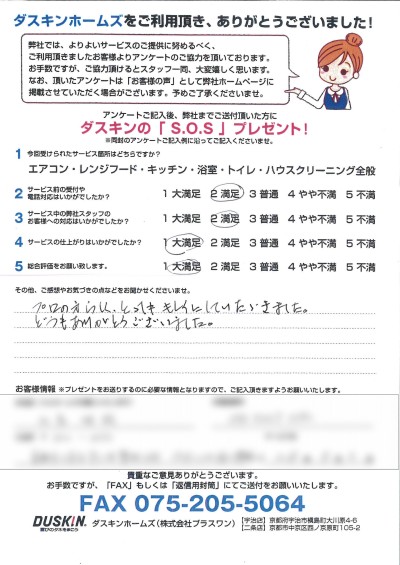 ダスキンホームズをご利用頂き、ありがとうございました！
弊社では、よりよいサービスのご提供に努めるべく、
ご利用頂きましたお客様よりアンケートのご協力を頂いております。
お手数ですが、ご協力頂けるとスタッフ一同、大変嬉しく思います。
なお、頂いたアンケートは「お客様の声」として弊社ホームページに
掲載させていただく場合がございます。予めご了承くださいませ。
アンケートご記入後、弊社までご送付頂いた方に
ダスキンの「S.O.S」プレゼント！
※同封のアンケートご記入例に沿ってご記入くださいませ。
1 今回受けられたサービス箇所はどちらですか？
エアコン・レンジフード・キッチン・浴室・トイレ・ハウスクリーニング全般
2 サービス前の受付や
電話対応はいかがでしたか？ 1 大満足 2 満足 3 普通 4 やや不満 5 不満
3 サービス中の弊社スタッフの
お客様への対応はいかがでしたか？ 1 大満足 2 満足 3 普通 4 やや不満 5 不満
4 サービスの仕上がりはいかがでしたか？ 1 大満足 2 満足 3 普通 4 やや不満 5 不満
5 総合評価をお願い致します。 1 大満足 2 満足 3 普通 4 やや不満 5 不満
その他、ご感想やお気づきの点などをお聞かせくださいませ。
プロの方らしく、とってもキレイにしていただきました。
どうもありがとうございました。
お客様情報 ※プレゼントをお送りするのに必要な情報となりますので、ご記入頂きますようお願いいたします。
貴重なご意見ありがとうございます。
お手数ですが、「FAX」もしくは「返信用封筒」にてご送付をお願いいたします。
FAX 075-205-5064
DUSKIN 喜びのタネをまこう
ダスキンホームズ（株式会社プラスワン）
【宇治店】京都府宇治市槇島町大川原4-6
【二条店】京都市中京区西ノ京原町105-2